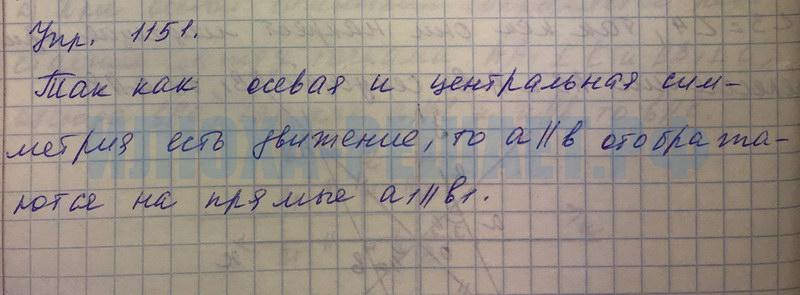 Упр. 1151.
Так как осевая и центральная сим-
метрия есть движение, то a||b отобража-
ются на прямые a1||b1.